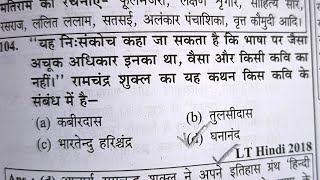 मतिराम की रचनाएँ- फूलमंजरी, लक्षण शृंगार, साहित्य सार,
रसराज, ललित ललाम, सतसई, अलंकार पंचाशिका, वृत्त कौमुदी आदि।
104. "यह निःसंकोच कहा जा सकता है कि भाषा पर जैसा
अचूक अधिकार इनका था, वैसा और किसी कवि का
नहीं।" रामचंद्र शुक्ल का यह कथन किस कवि के
संबंध में है–
(a) कबीरदास (b) तुलसीदास
(c) भारतेन्दु हरिश्चंद्र (d) घनानंद
LT Hindi 2018
आचार्य रामचन्द्र शुक्ल ने अपने इतिहास ग्रंथ 'हिन्दी